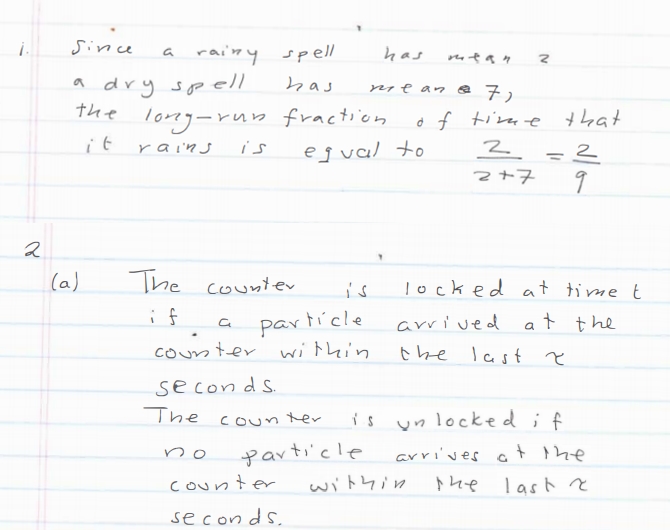 1. Since a rainy spell has mean 2
a dry spell has mean 7,
the long-run fraction of time that
it rains is equal to 2/(2+7) = 2/9
2
(a) The counter is locked at time t
if a particle arrived at the
counter within the last τ
seconds.
The counter is unlocked if
no particle arrives at the
counter within the last τ
seconds.